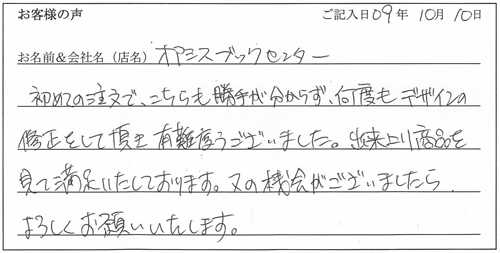 お客様の声 ご記入日 09年 10月 10日
お名前&会社名(店名) オアシスブックセンター
初めての注文で、こちらも勝手が分からず、何度もデザインの
修正をして頂き有難度うございました。出来上り商品を
見て満足いたしております。又の機会がございましたら
よろしくお願いいたします。